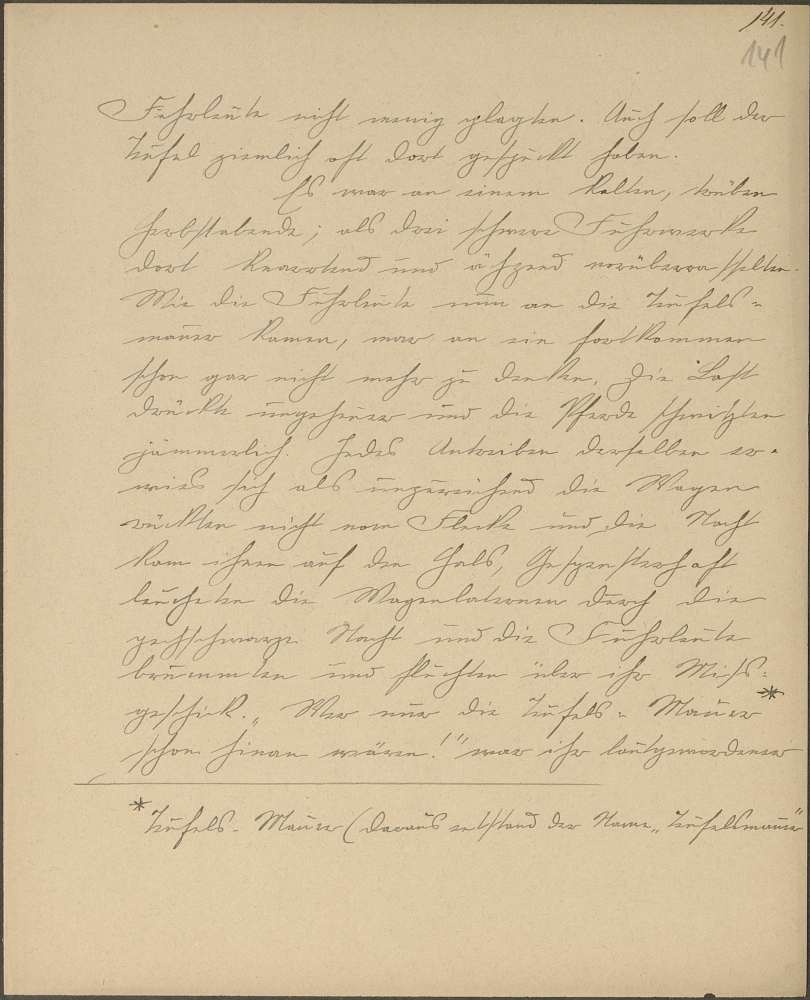 141.
141
Fuhrleute nicht wenig plagten. Auch soll der
Teufel ziemlich oft dort gespuckt haben.
Es war an einem kalten, trüben
Herbstabende; als drei schwere Fuhrwerke
dort knarrend und ächzend vorüberrasselten.
Wie die Fuhrleute nun an die Teufels=
mauer kamen, war an ein fortkommen
schon gar nicht mehr zu denken. Die Last
drückte ungeheuer und die Pferde schwitzten
jämmerlich. Jedes Antreiben derselben er-
wies sich als unzureichend die Wagen
rückten nicht vom Flecke und die Nacht
kam ihnen auf den Hals, Gespensterhaft
leuchteten die Wagenlaternen durch die
pechschwarze Nacht und die Fuhrleute
brummten und fluchten über ihr Miss=
geschick. „Wer nur die Teufels= Mauer *
schon hinan wären!" war ihr lautgewordener
* Teufels- Mauer (daraus entstand der Name „Teufelsmauer"